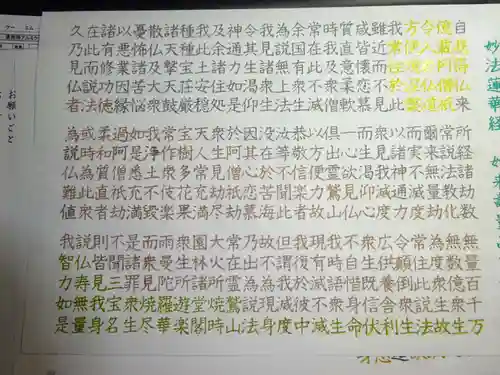 妙法蓮華経 如来寿量
自我得仏来 所経諸劫数 無量百千万
億載阿僧祇 常説法教化 無数億衆生
令入於仏道 爾来無量劫 為度衆生故
方便現涅槃 而実不滅度 常住此説法
我常住於此 以諸神通力 令顛倒衆生
雖近而不見 衆見我滅度 広供養舎利
咸皆懐恋慕 而生渇仰心 衆生既信伏
質直意柔軟 一心欲見仏 不自惜身命
時我及衆僧 倶出霊鷲山 我時語衆生
常在此不滅 以方便力故 現有滅不滅
余国有衆生 恭敬信楽者 我復於彼中
為説無上法 汝等不聞此 但謂我滅度
我見諸衆生 没在於苦海 故不為現身
令其生渇仰 因其心恋慕 乃出為説法
神通力如是 於阿僧祇劫 常在霊鷲山
及余諸住処 衆生見劫尽 大火所焼時
我此土安穏 天人常充満 園林諸堂閣
種種宝荘厳 宝樹多花菓 衆生所遊楽
諸天撃天鼓 常作衆伎楽 雨曼陀羅華
散仏及大衆 我浄土不毀 而衆見焼尽
憂怖諸苦悩 如是悉充満 是諸罪衆生
以悪業因縁 過阿僧祇劫 不聞三宝名
諸有修功徳 柔和質直者 則皆見我身
在此而説法 或時為此衆 説仏寿無量
久乃見仏者 為説仏難値 我智力如是
お願いごと